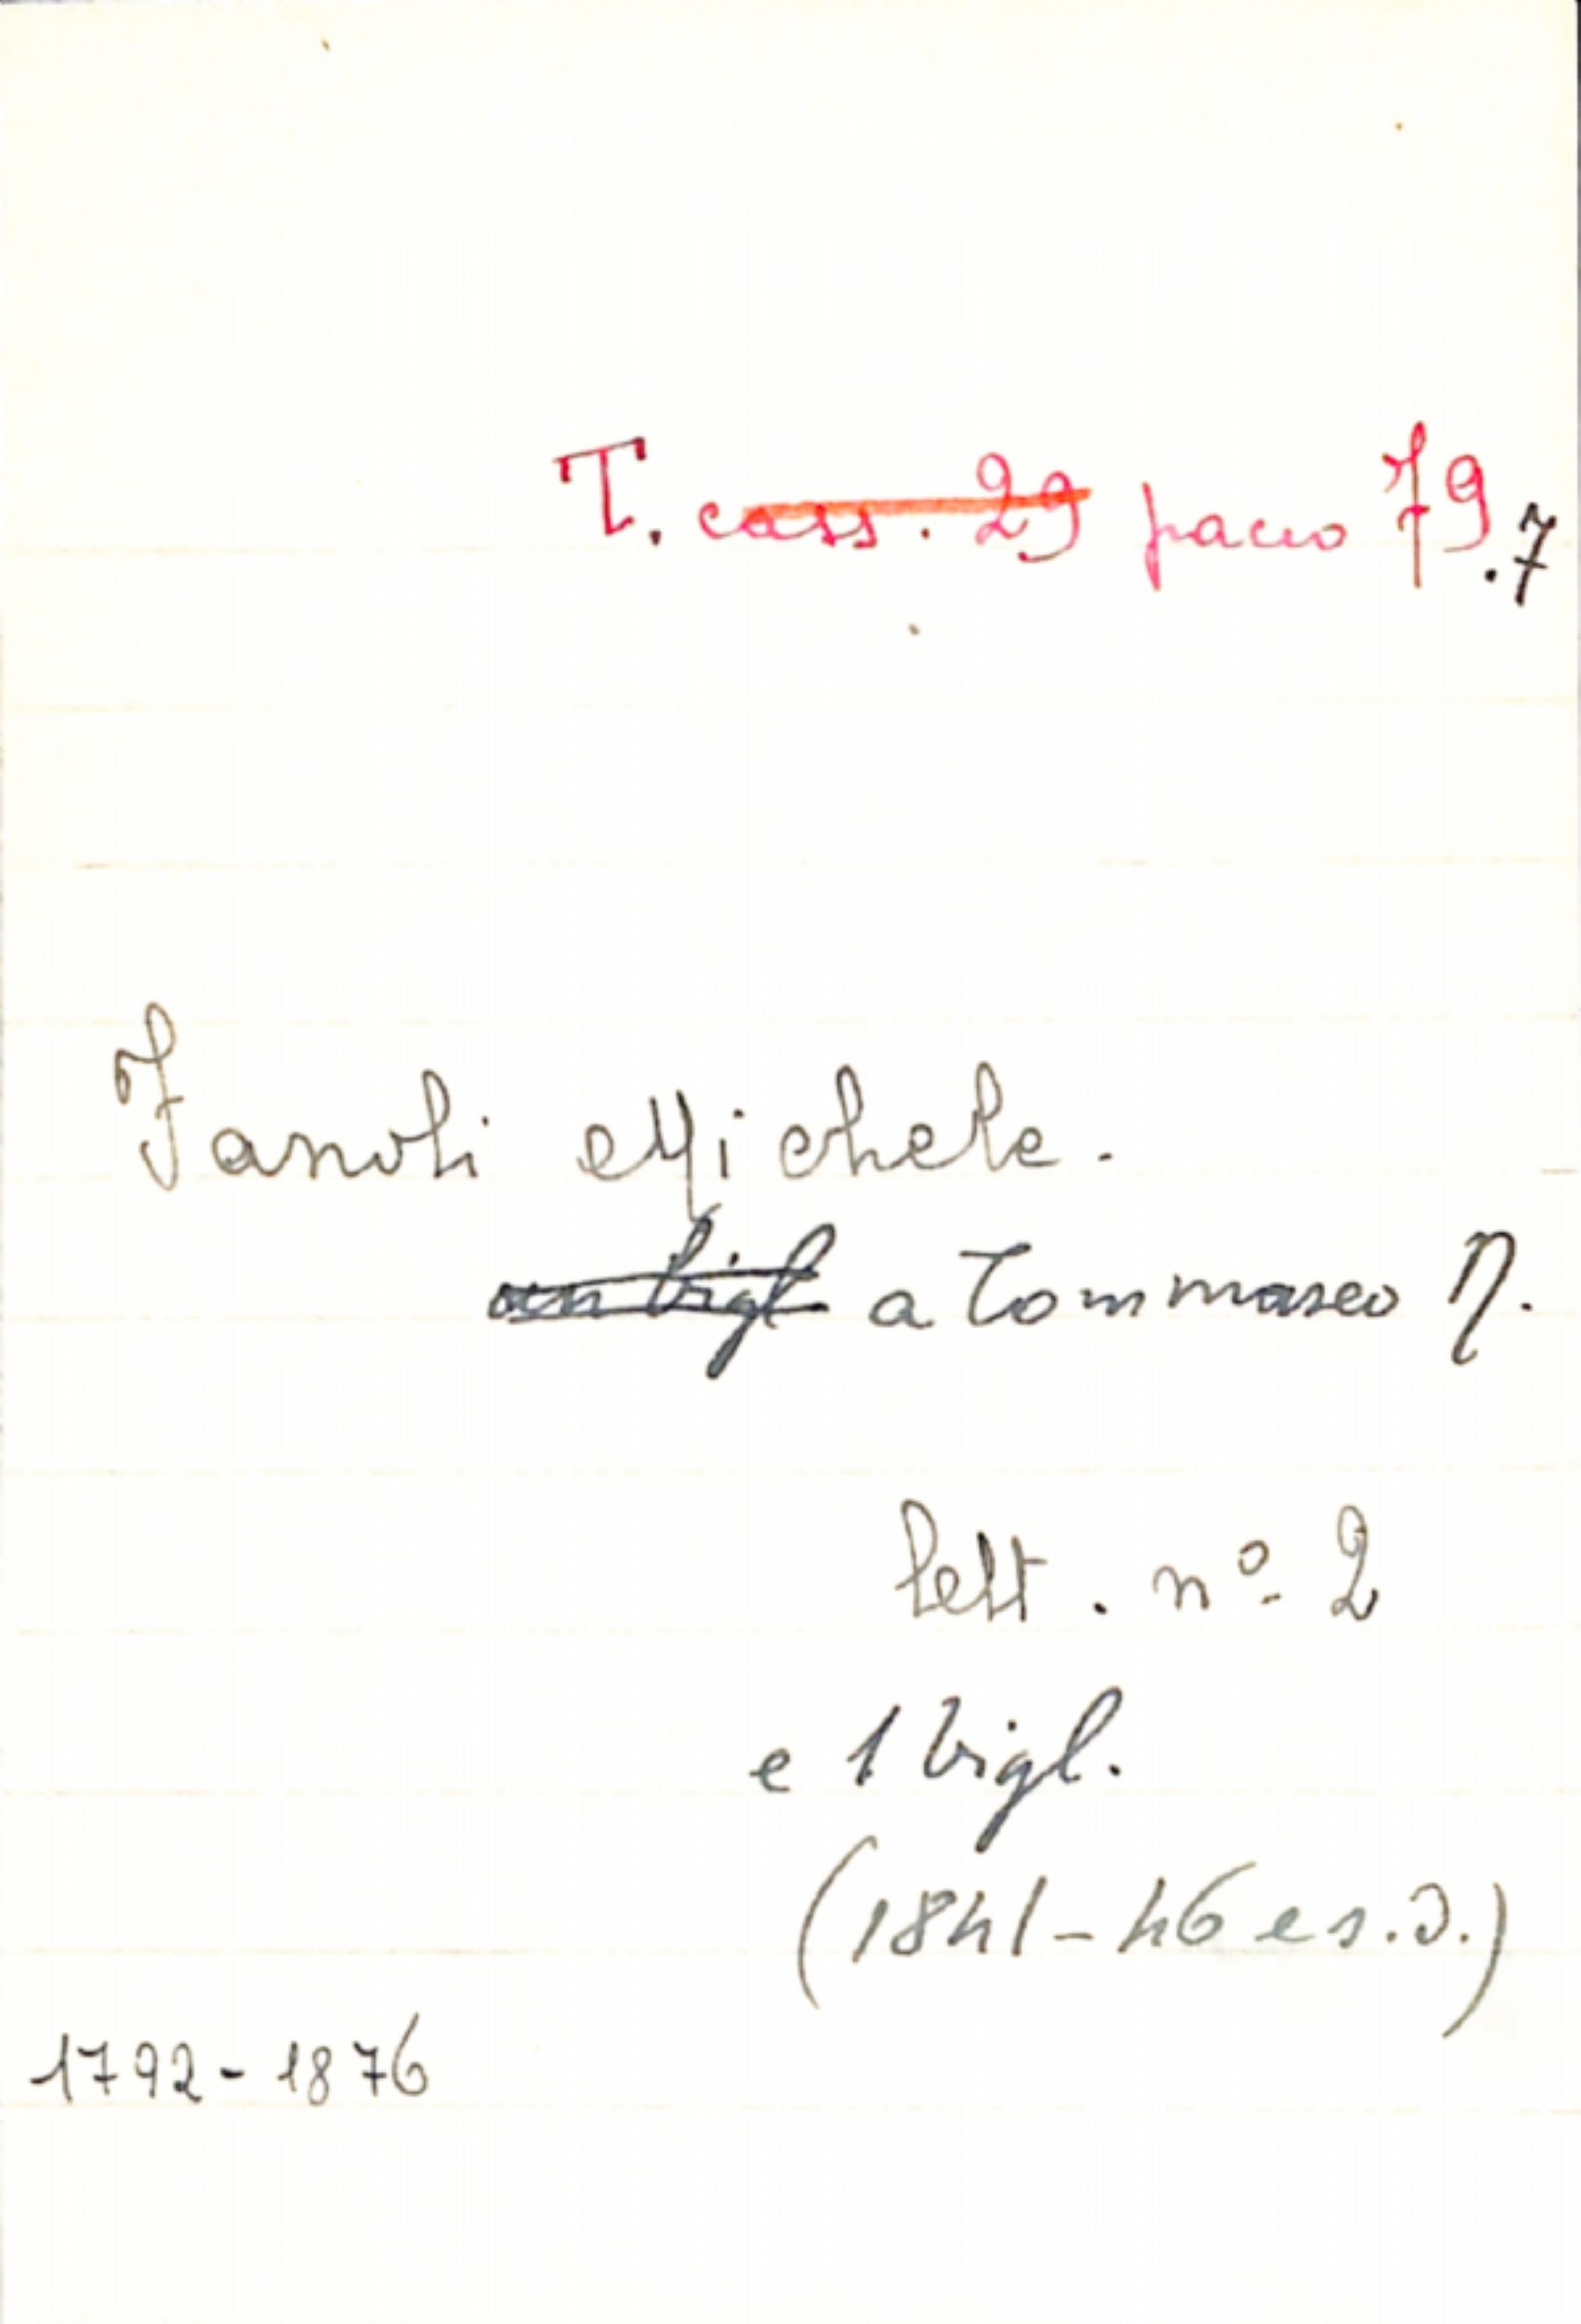 T. cass. 29 pacco 79.7
Fanoli Michele.
un bigl a Tommaseo N.
lett. nº 2
e 1 bigl.
(1841-46 e s.d.)
1792-1876